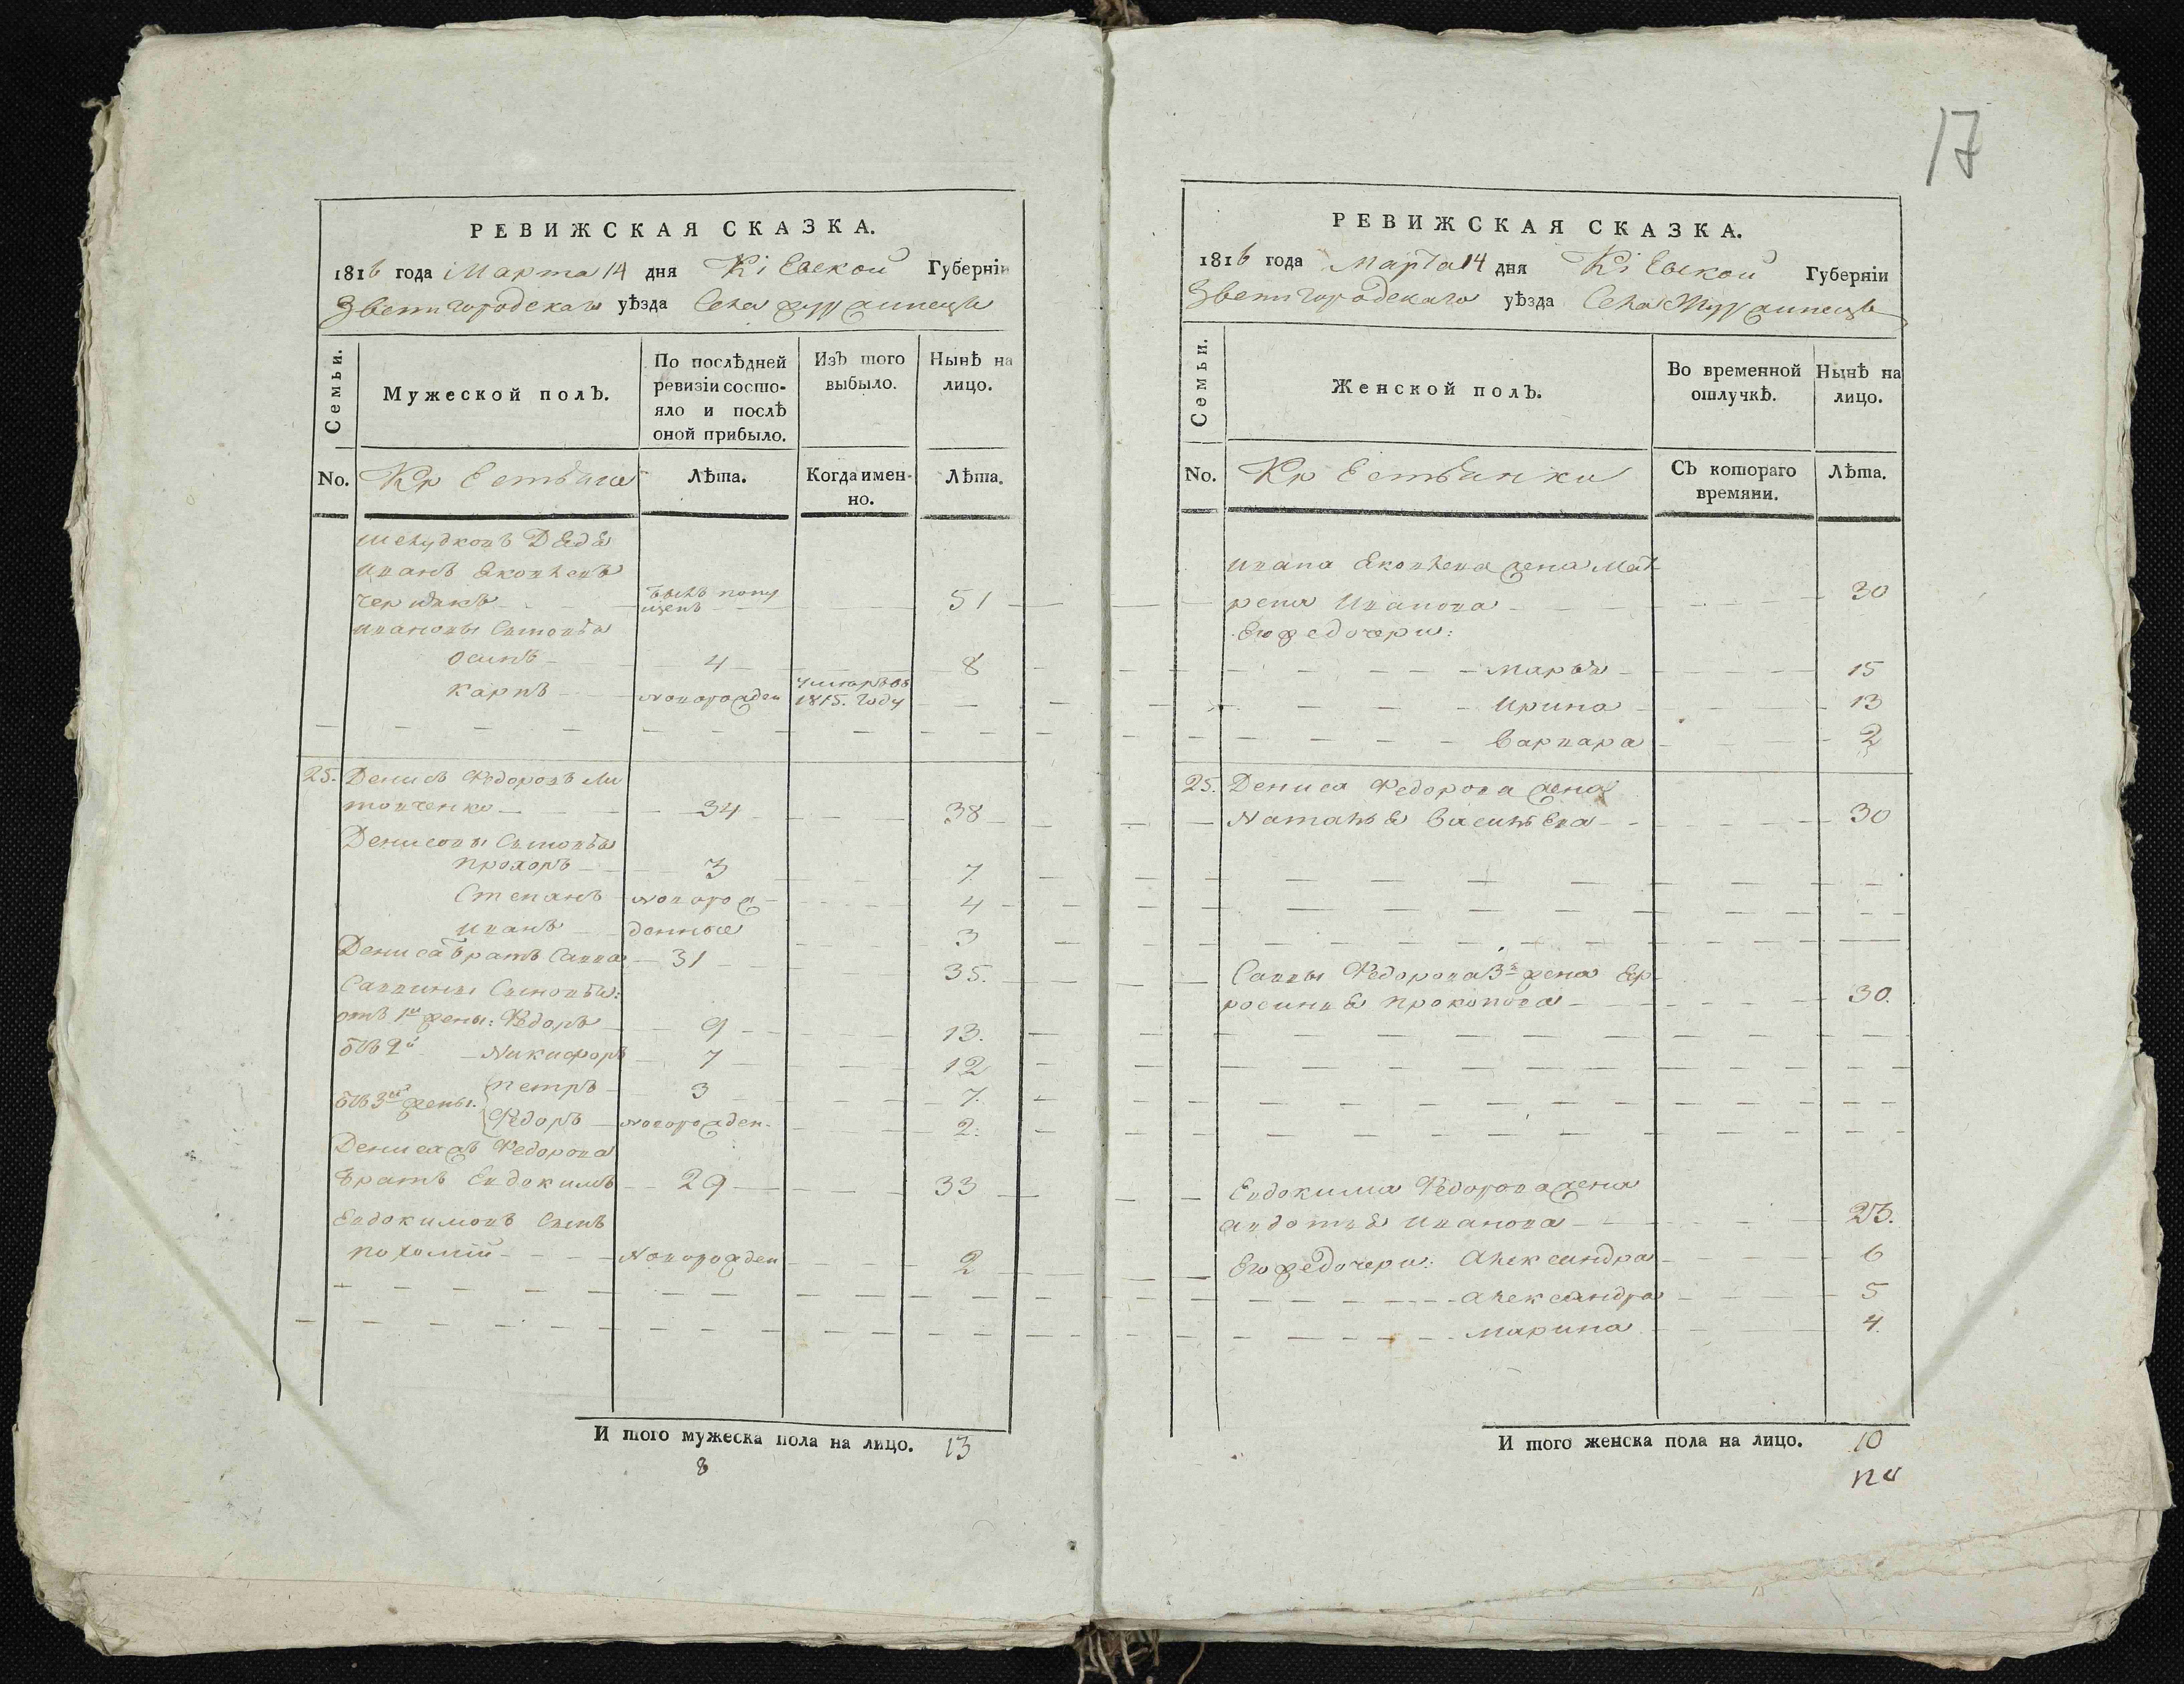 17
РЕВИЖСКАЯ СКАЗКА.
1816 года Марта 14 дня Кіевской Губерніи
Звенигородскаго уѣзда Села
Семьи.
Мужеской полъ.
По послѣдней ревизіи состояло и послѣ оной прибыло.
Изъ того выбыло.
Нынѣ на лицо.
No.
Лѣта.
Когда именно.
Лѣта.
Иванъ Яковлевъ
51
Ивановы Сыновья
Осипъ 4 8
Карпъ новорожден умеръ въ 1815. году
25. Денисъ Федоровъ Ли
товченко 34 38
Денисовы Сыновья
Прохоръ 3 7
Степанъ новорож 4
Иванъ денные 3
Дениса братъ Савва 31 35.
Саввины Сыновья:
отъ 1й жены: Федоръ 9 13.
отъ 2й Никифоръ 7 12
отъ 3й жены. Петръ 3 7.
Федоръ новорожден. 2.
Дениса жъ Федорова
братъ Евдокимъ 29 33
Евдокимовъ Сынъ
Пахомій новорожден 2
И того мужеска пола на лицо. 13
8
РЕВИЖСКАЯ СКАЗКА.
1816 года Марта 14 дня Кіевской Губерніи
Звенигородскаго уѣзда Села
Семьи.
Женской полъ.
Во временной отлучкѣ.
Нынѣ на лицо.
No.
Съ котораго времяни.
Лѣта.
Ивана Яковлева жена Мат
рена Иванова 30
Его жъ дочери:
Марья 15
Ирина 13
Варвара 2
25. Дениса Федорова жена
Наталья Васильева 30
Саввы Федорова 3я жена Еф
росинья Прокопова 30.
Евдокима Федорова жена
Авдотья Иванова 23.
Его жъ дочери: Александра 6
Александра 5
Марина 4.
И того женска пола на лицо. 10